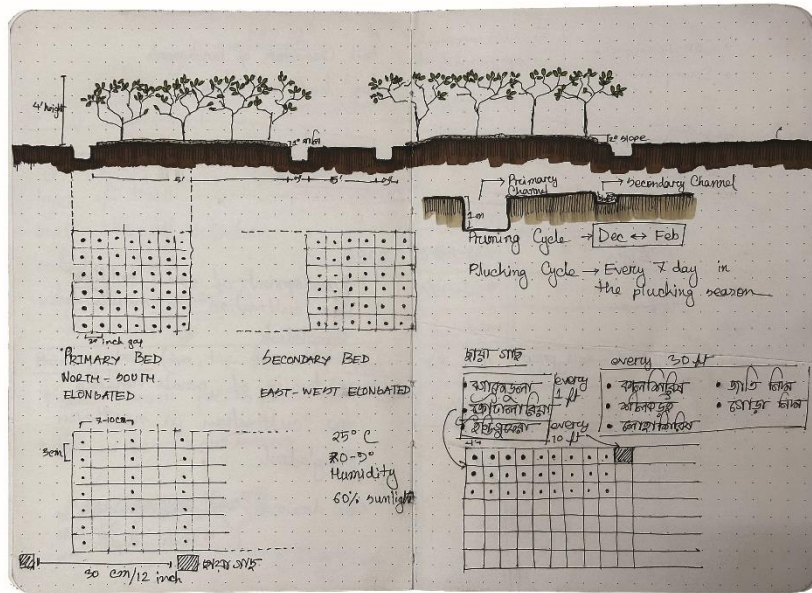 4' height
2° slope
5'
5'
Primary
Channel
Secondary Channel
1 m
Pruning Cycle → Dec ↔ Feb
Plucking Cycle → Every 7 day in
the plucking season
20 inch gap
PRIMARY BED
NORTH - SOUTH
ELONGATED
SECONDARY BED
EAST-WEST ELONGATED
7-10cm
3cm
25°C
Humidity
60% sunlight
30 cm/12 inch
ছায়া গাছ
ছায়া গাছ
every
1 ft
every
10 ft
every 30 ft
কালশিরিষ
শীলকড়ই
লোহাশিরিষ
জাতি নিম
ঘোড়া নিম